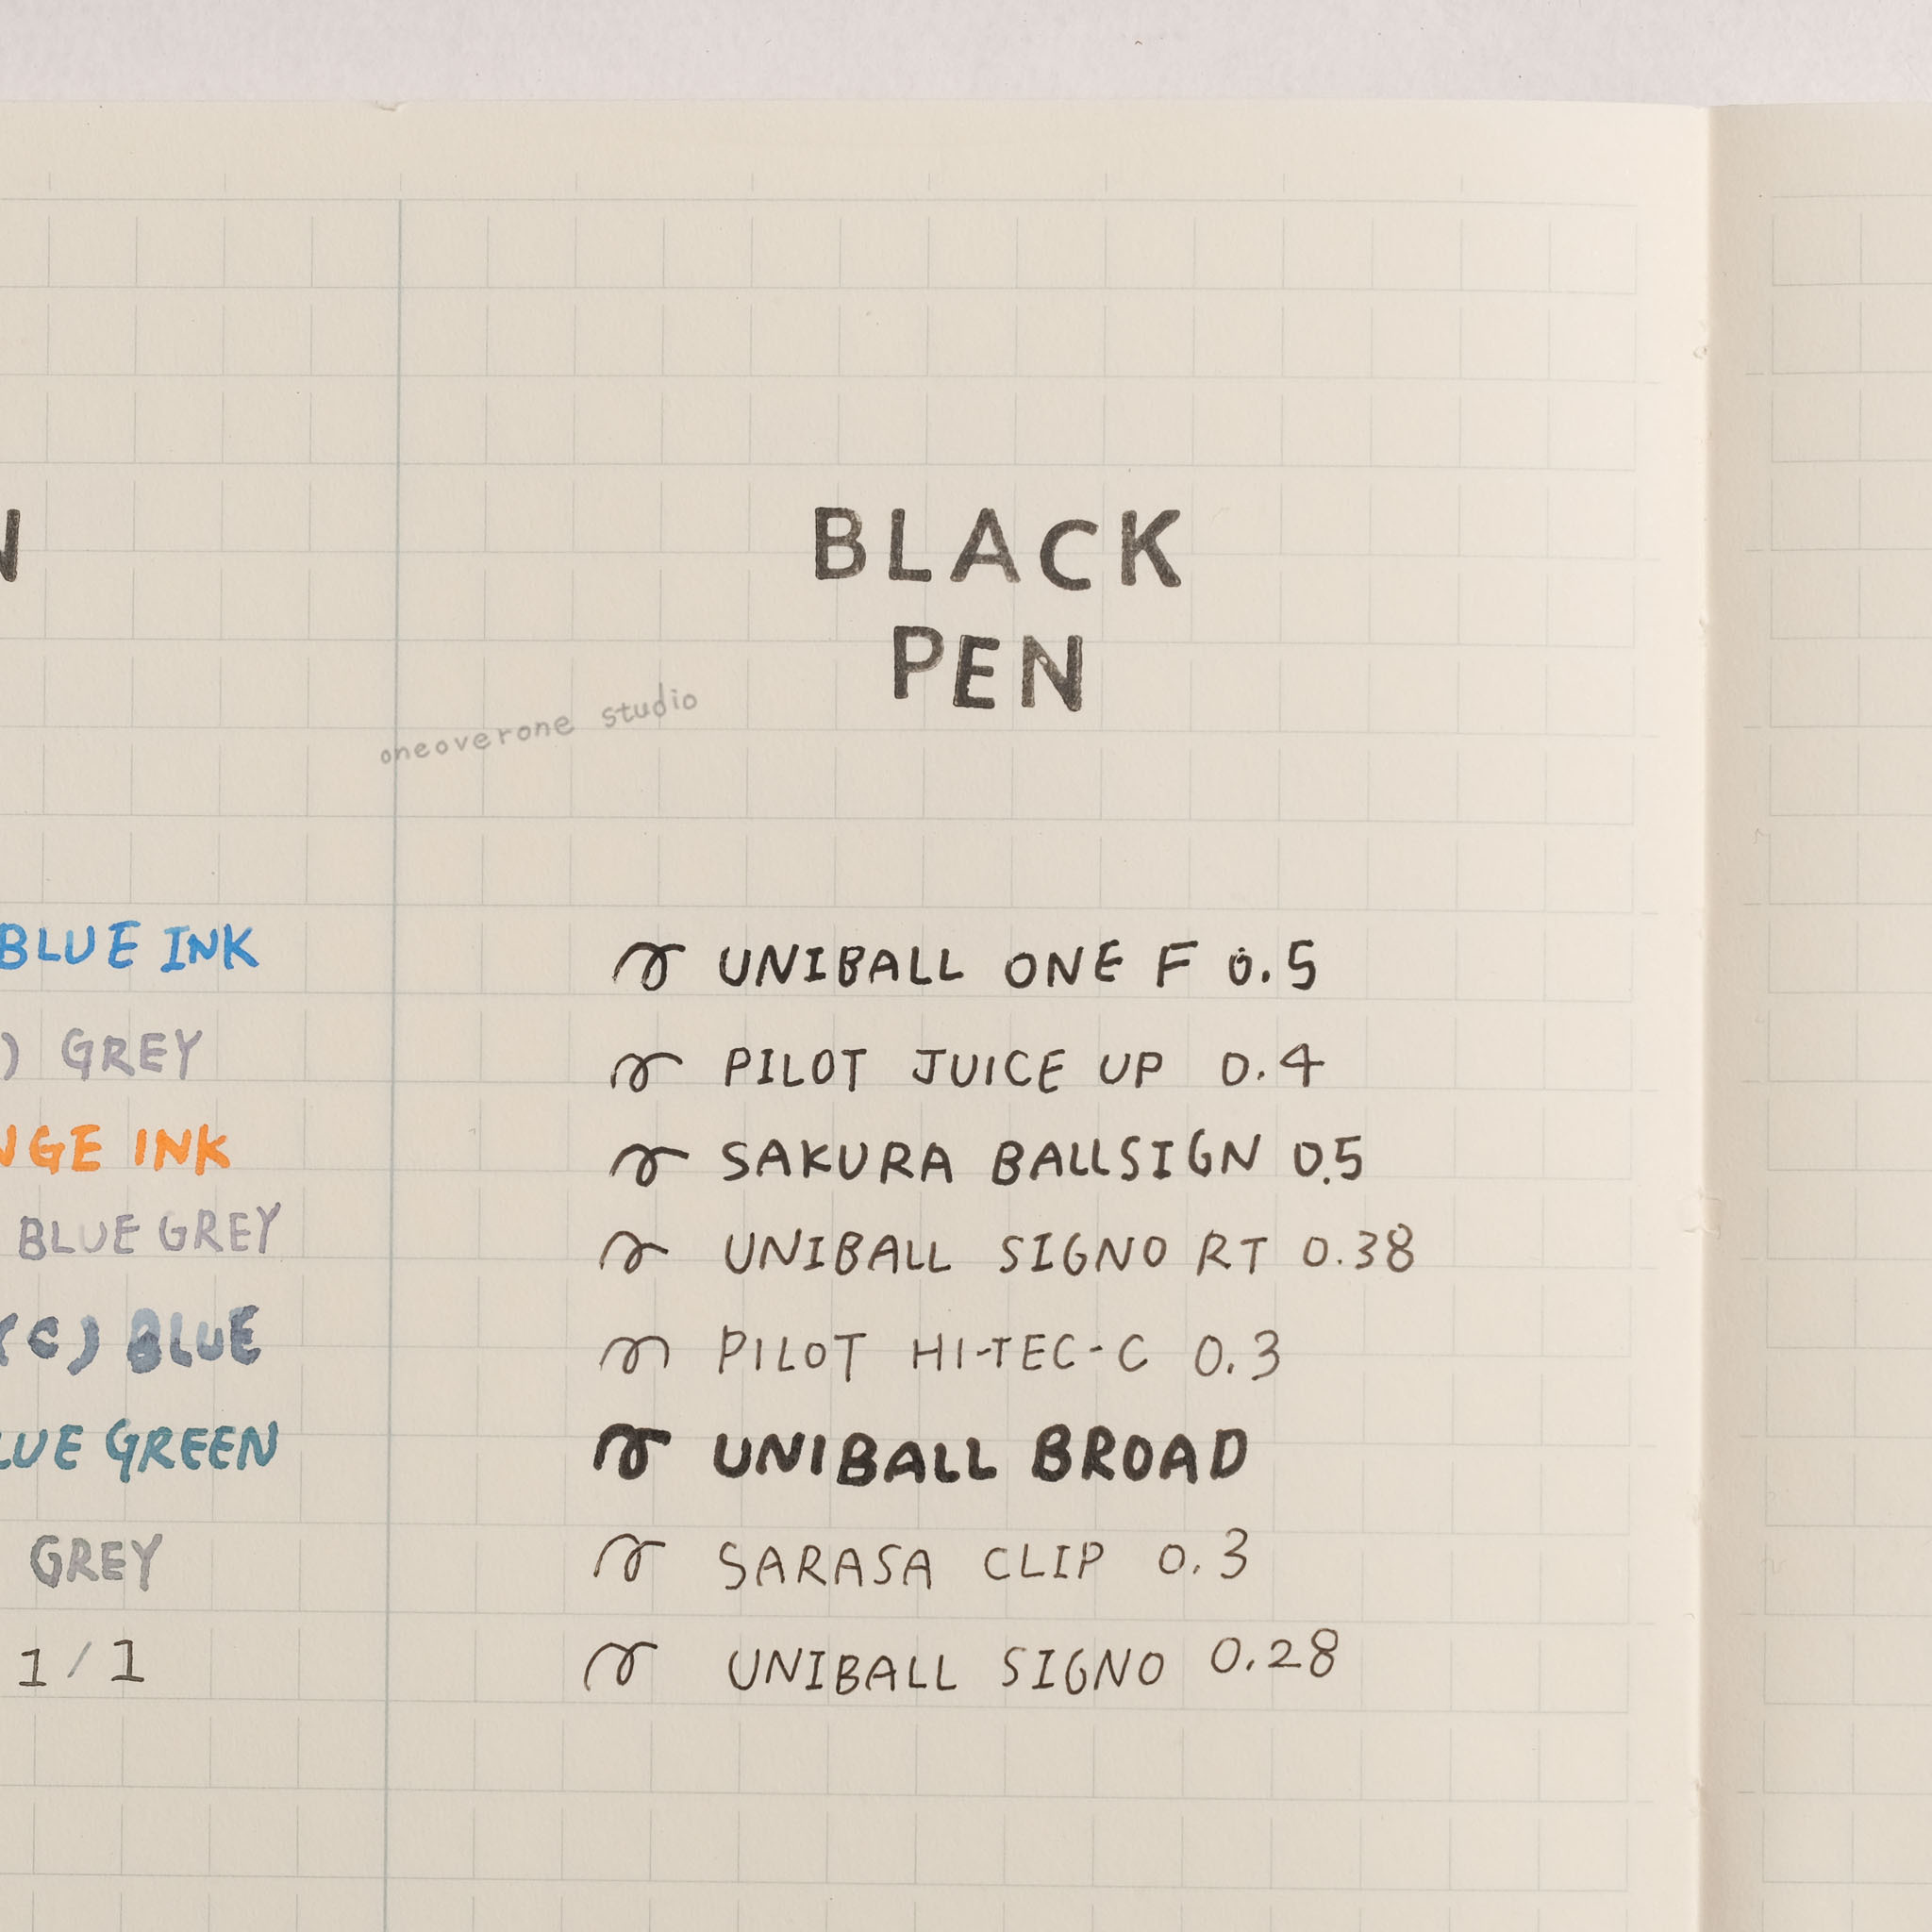 N
BLACK
PEN
oneoverone studio
BLUE INK
) GREY
NGE INK
BLUE GREY
(C) BLUE
LUE GREEN
GREY
1/1
UNIBALL ONE F 0.5
PILOT JUICE UP 0.4
SAKURA BALLSIGN 0.5
UNIBALL SIGNO RT 0.38
PILOT HI-TEC-C 0.3
UNIBALL BROAD
SARASA CLIP 0.3
UNIBALL SIGNO 0.28